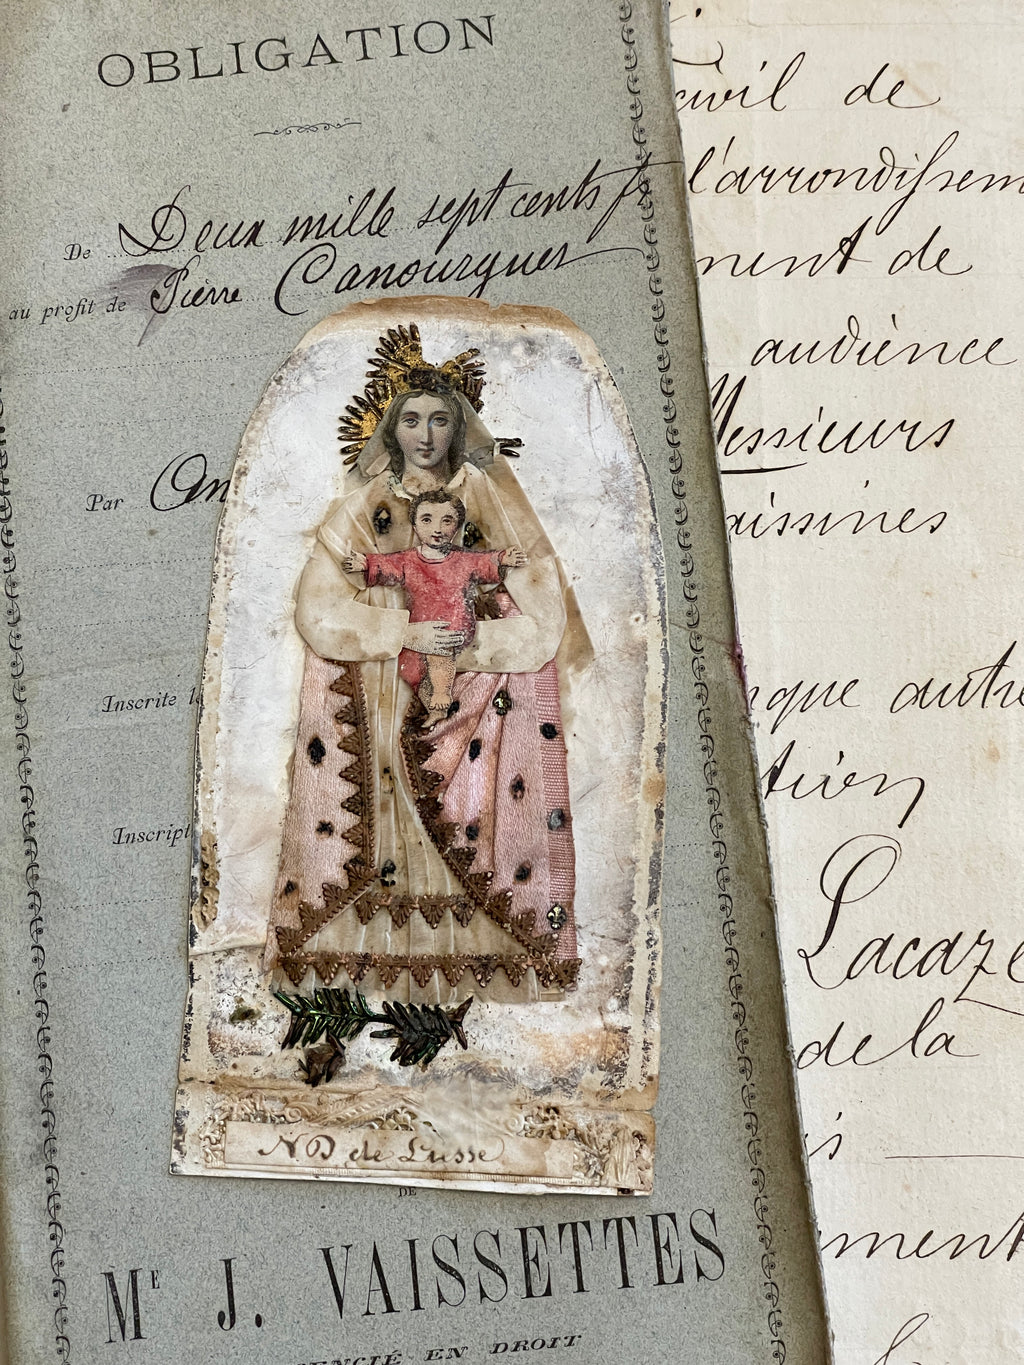 OBLIGATION
De Deux mille sept cents f
au profit de Pierre Canourgues
Par
Inscrite
ND de Lusse
DE
ME J. VAISSETTES
EN DROIT
civil de
l'arrondissem
ment de
audience
Messieurs
que autre
tion
Lacaze
de la
ment